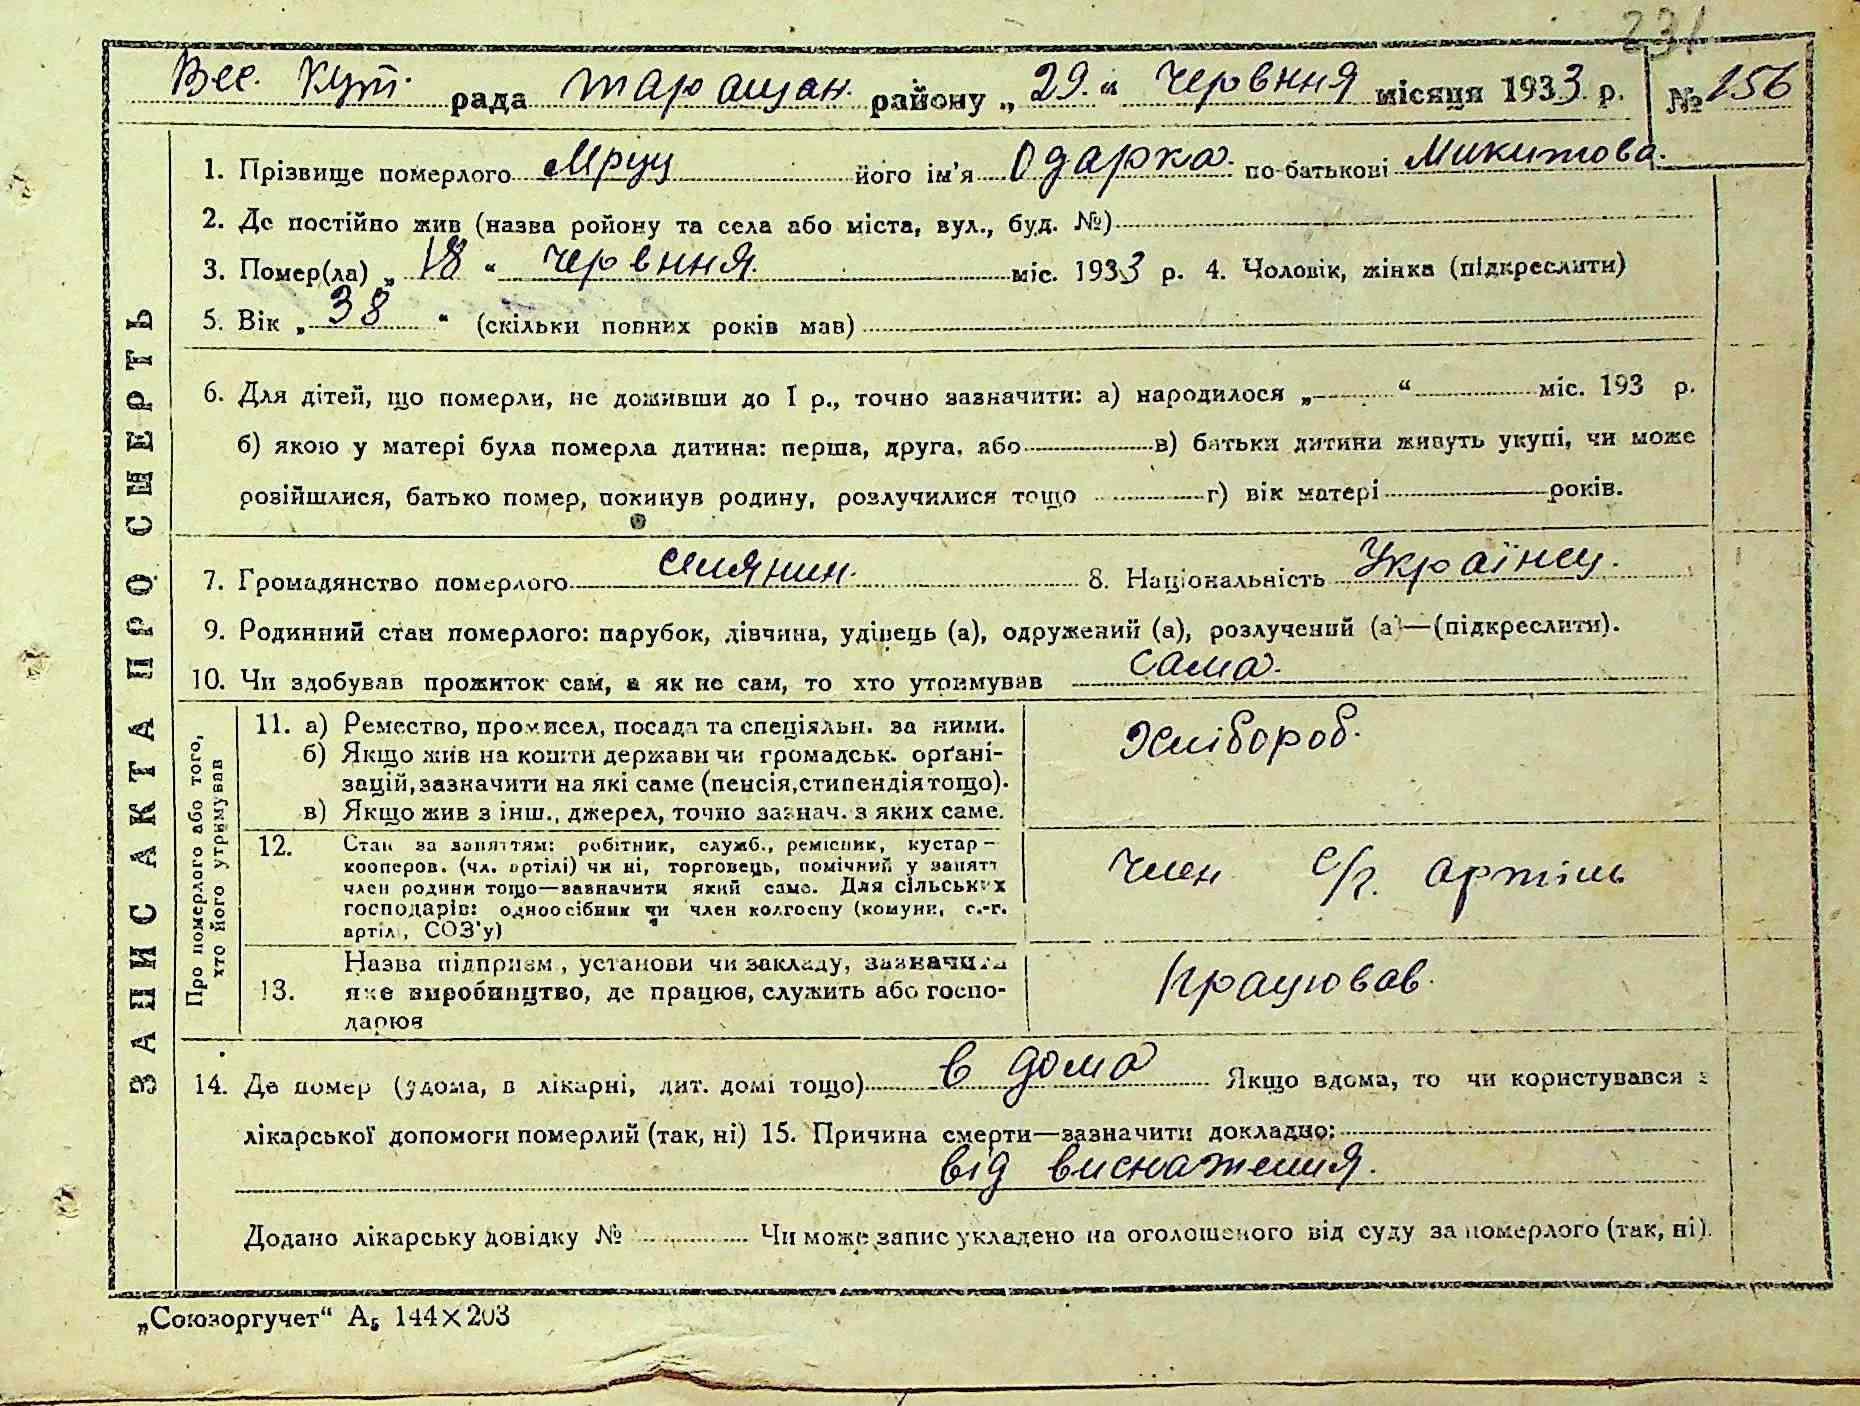 231
Вес. Кут. рада таращан. району „29.“ червння місяця 1933 р. № 156
ЗАПИС АКТА ПРО СМЕРТЬ
1. Прізвище померлого Мрщ його ім'я Одарка. по-батькові Микитова.
2. Де постійно жив (назва ройону та села або міста, вул., буд. №)
3. Помер(ла) „18“ червння. міс. 1933 р. 4. Чоловік, жінка (підкреслити)
5. Вік „38“ (скільки повних років мав)
6. Для дітей, що померли, не доживши до 1 р., точно зазначити: а) народилося „ “ міс. 193 р.
б) якою у матері була померла дитина: перша, друга, або в) батьки дитини живуть укупі, чи може
розійшлися, батько помер, покинув родину, розлучилися тощо г) вік матері років.
7. Громадянство померлого селянин. 8. Національність Українец.
9. Родинний стан померлого: парубок, дівчина, удівець (а), одружений (а), розлучений (а)—(підкреслити).
10. Чи здобував прожиток сам, а як не сам, то хто утримував сама.
Про померлого або того,
хто його утримував
11. а) Ремество, промисел, посада та спеціяльн. за ними. Хлібороб.
б) Якщо жив на кошти держави чи громадськ. орґані-
зацій, зазначити на які саме (пенсія, стипендія тощо).
в) Якщо жив з інш., джерел, точно зазнач. з яких саме.
12. Стан за заняттям: робітник, служб., ремісник, кустар-
кооперов. (чл. артілі) чи ні, торговець, помічний у занятт
член родини тощо—зазначити який саме. Для сільських
господарів: одноосібник чи член колгоспу (комуни, с.-г.
артілі, СОЗ'у)
Член с/г. артіль
Назва підприєм, установи чи закладу, зазначити
13. яке виробництво, де працює, служить або госпо-
дарює
працював.
14. Де помер (удома, в лікарні, дит. домі тощо) в дома Якщо вдома, то чи користувався з
лікарської допомоги померлий (так, ні) 15. Причина смерти—зазначити докладно:
від виснаження.
Додано лікарську довідку № Чи може запис укладено на оголошеного від суду за померлого (так, ні).
„Союзоргучет“ А5 144×203